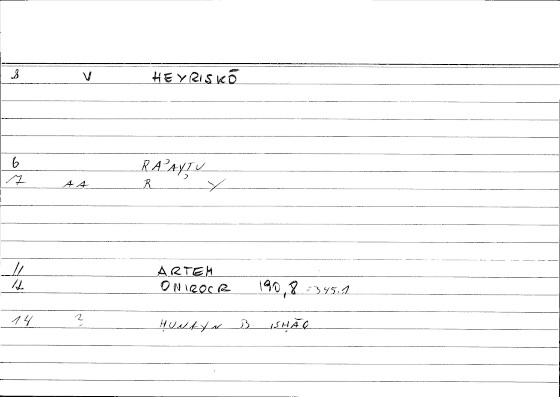 3 V HEYRISKŌ
6 RAʾAYTU
7 AA R ʾ Y
11 ARTEM
12 ONIROCR 190,8 =345.1
14 ? ḤUNAYN B ISḤĀQ